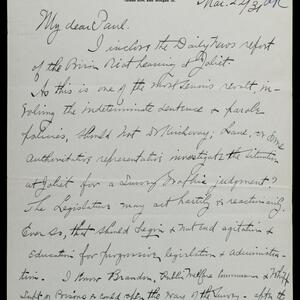 Mar. 22/31
My dear Paul.
I inclose the Daily News report
of the Prison Riot hearing at Joliet
As this is one of the most serious revolt, in-
volving the indeterminate sentence & parole
policies, should not Dr Kirchwey, Lane, or some
authoritative representative investigate the situation
at Joliet for a Survey Graphic judgment?
The Legislature may act hastily & reactionary.
Even so, that should begin & not end agitation &
education for progressive legislation & administra-
tion. I know Brandon, Public Welfare Commissioner &
Supt of Prisons & could open the way of the Survey